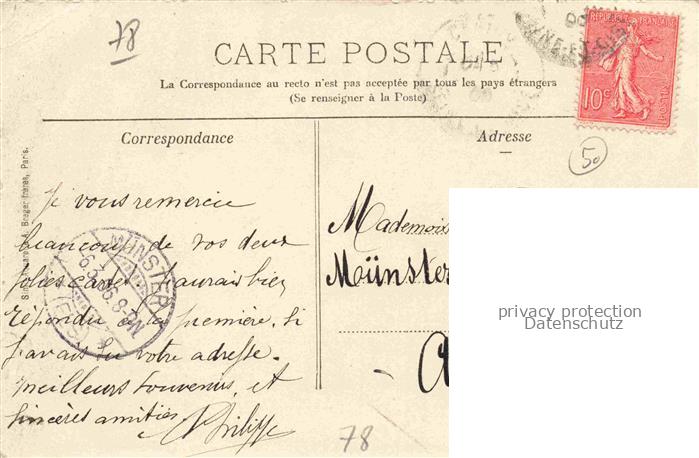 78
CARTE POSTALE
La Correspondance au recto n'est pas acceptée par tous les pays étrangers
(Se renseigner à la Poste)
RÉPUBLIQUE FRANÇAISE
10c
POSTES
50
Correspondance
Adresse
Je vous remercie
beaucoup de vos deux
jolies cartes j'aurais bien
répondu à la première, si
j'avais eu votre adresse.
meilleurs souvenirs et
sincères amitiés
Philippe
MÜNSTER
6.3.06.8-9N
Mademois
Münster
A
privacy protection
Datenschutz
78
Paris.